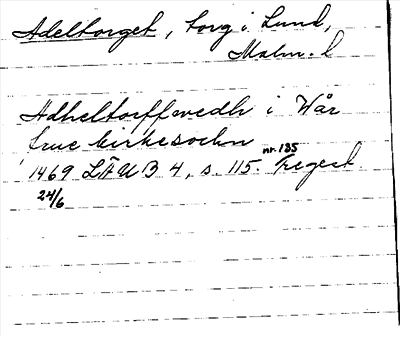 Adeltorget, torg i Lund,
Malm. l
Adheltorffwedh i Wår
frue kirkesochn
nr. 135
1469 LÄUB 4, s. 115. Regest.
24/6